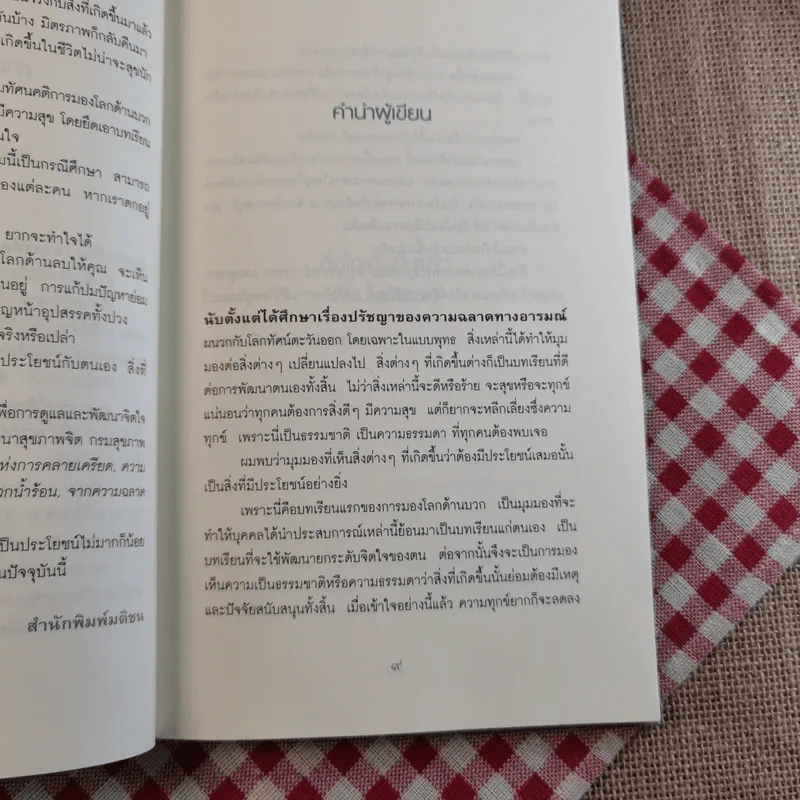 นจริงกับสิ่งที่เกิดขึ้นมาแล้ว
กันบ้าง มิตรภาพก็กลับคืนมา
เกิดขึ้นในชีวิตไม่น่าจะสุขนัก
มทัศนคติการมองโลกด้านบวก
มีความสุข โดยยึดเอาบทเรียน
นใจ
มนี้เป็นกรณีศึกษา สามารถ
องแต่ละคน หากเราตกอยู่
ยากจะทำใจได้
โลกด้านลบให้คุณ จะเห็น
นอยู่ การแก้ปมปัญหาย่อม
ญหน้าอุปสรรคทั้งปวง
จริงหรือเปล่า
ประโยชน์กับตนเอง สิ่งที่
พื่อการดูแลและพัฒนาจิตใจ
นาสุขภาพจิต กรมสุขภาพ
ห่งการคลายเครียด, ความ
วกน้ำร้อน, จากความฉลาด
เป็นประโยชน์ไม่มากก็น้อย
นปัจจุบันนี้
สำนักพิมพ์มติชน
คำนำผู้เขียน
นับตั้งแต่ได้ศึกษาเรื่องปรัชญาของความฉลาดทางอารมณ์
ผนวกกับโลกทัศน์ตะวันออก โดยเฉพาะในแบบพุทธ สิ่งเหล่านี้ได้ทำให้มุม
มองต่อสิ่งต่างๆ เปลี่ยนแปลงไป สิ่งต่างๆ ที่เกิดขึ้นต่างก็เป็นบทเรียนที่ดี
ต่อการพัฒนาตนเองทั้งสิ้น ไม่ว่าสิ่งเหล่านี้จะดีหรือร้าย จะสุขหรือจะทุกข์
แน่นอนว่าทุกคนต้องการสิ่งดีๆ มีความสุข แต่ก็ยากจะหลีกเลี่ยงซึ่งความ
ทุกข์ เพราะนี่เป็นธรรมชาติ เป็นความธรรมดา ที่ทุกคนต้องพบเจอ
ผมพบว่ามุมมองที่เห็นสิ่งต่างๆ ที่เกิดขึ้นว่าต้องมีประโยชน์เสมอนั้น
เป็นสิ่งที่มีประโยชน์อย่างยิ่ง
เพราะนี่คือบทเรียนแรกของการมองโลกด้านบวก เป็นมุมมองที่จะ
ทำให้บุคคลได้นำประสบการณ์เหล่านี้ย้อนมาเป็นบทเรียนแก่ตนเอง เป็น
บทเรียนที่จะใช้พัฒนายกระดับจิตใจของตน ต่อจากนั้นจึงจะเป็นการมอง
เห็นความเป็นธรรมชาติหรือความธรรมดาว่าสิ่งที่เกิดขึ้นนั้นย่อมต้องมีเหตุ
และปัจจัยสนับสนุนทั้งสิ้น เมื่อเข้าใจอย่างนี้แล้ว ความทุกข์ยากก็จะลดลง
๙